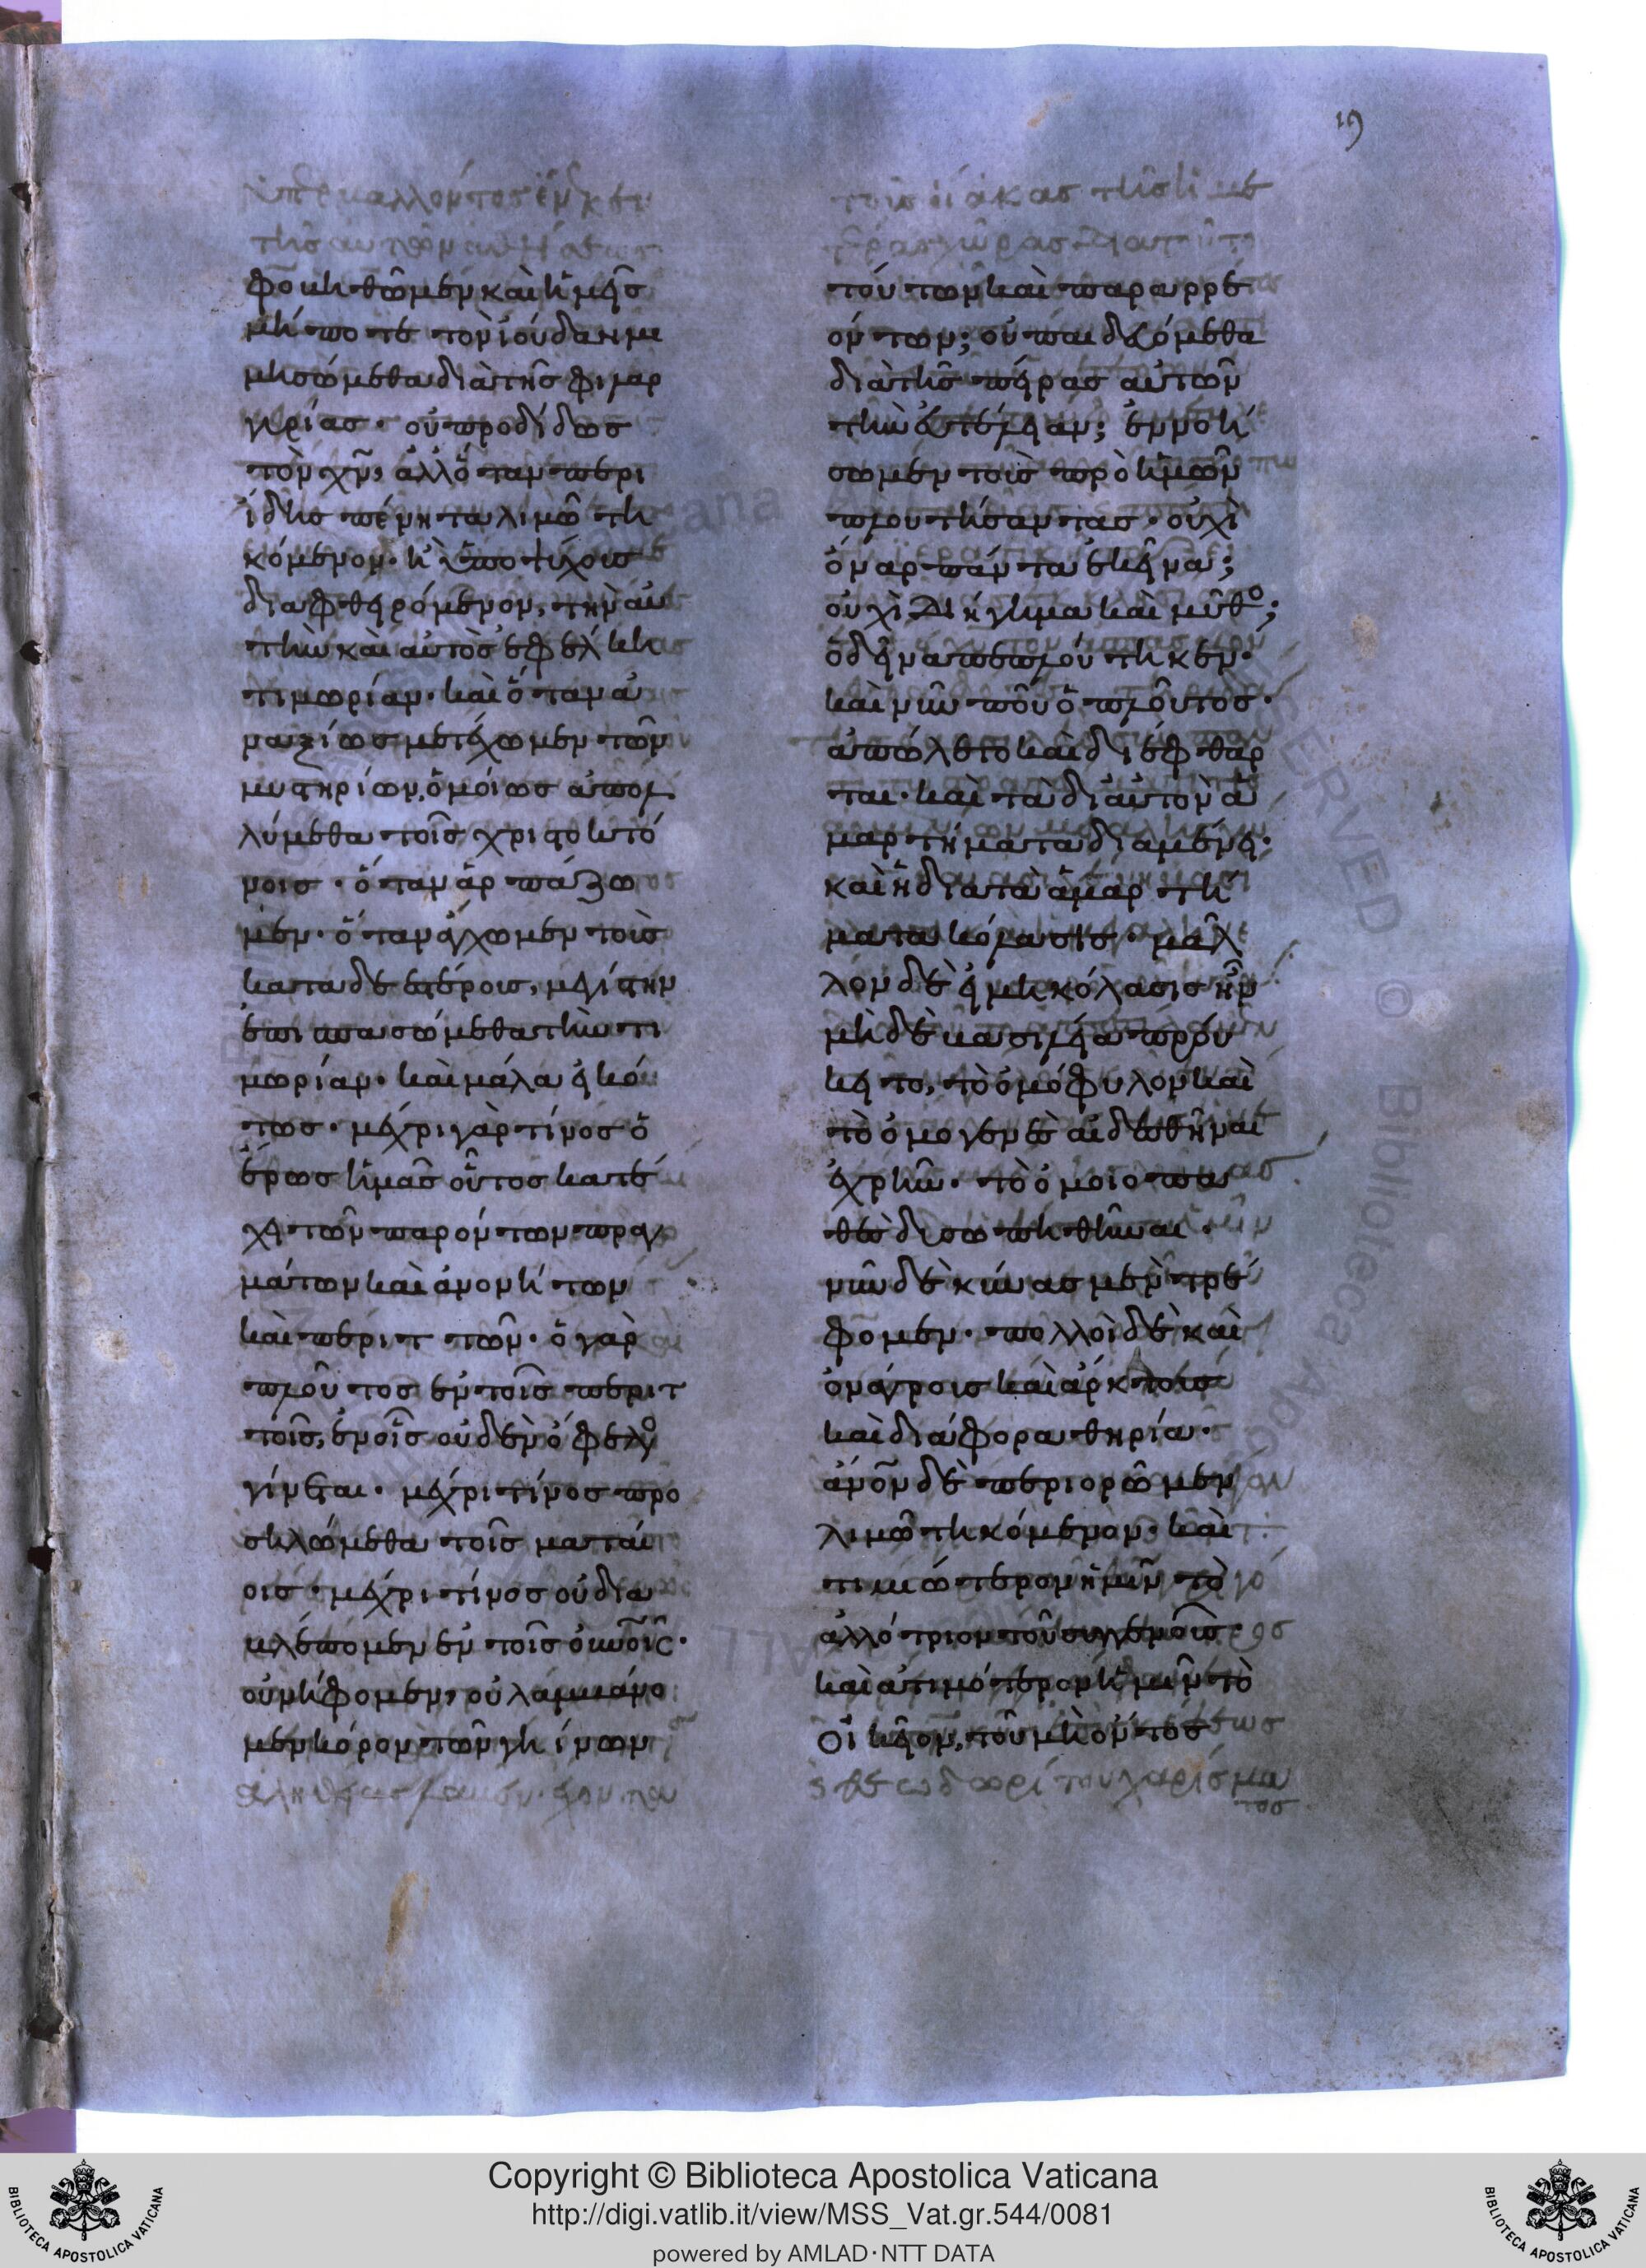 19
φοβηθῶμεν καὶ ἡμεῖς
μήποτε τὸν ἰούδαν μι
μησώμεθα διὰ τῆς φιλαρ
γυρίας· οὐ προδίδως
τὸν χν̄, ἀλλ' ὅταν περι
ίδης πένητα λιμῶ τη
κόμενον· ἢ ὑπὸ ψύχους
διαφθειρόμενον, τὴν αὐ
τὴν καὶ αὐτὸς ἐφέλκη
τιμωρίαν· καὶ ὅταν ἀ
ναξίως μετέχωμεν τῶν
μυστηρίων, ὁμοίως ἀπολ
λύμεθα τοῖς χριστοκτό
νοις· ὅταν ἁρπάζω
μεν· ὅταν ἄγχωμεν τοὺς
καταδεεστέρους, μεγίστην
ἐπισπασώμεθα τὴν τι
μωρίαν· καὶ μάλα εἰκό
τως· μέχρι γὰρ τίνος ὁ
ἔρως ἡμᾶς οὗτος κατέ
χει τῶν παρόντων πραγ
μάτων καὶ ἀνονήτων
καὶ περιττῶν· ὁ γὰρ
πλοῦτος ἐν τοῖς περιτ
τοῖς, ἐν οἷς οὐδὲν ὄφελος
γίνεται· μέχρι τίνος προ
σηλώμεθα τοῖς ματαί
οις· μέχρι τίνος οὐ δια
βλέπομεν ἐν τοῖς οὐνοῖς·
οὐ νήφομεν, οὐ λαμβάνο
μεν κόρον τῶν γηίνων
τούτων καὶ παραρρε
όντων; οὐ παιδευόμεθα
διὰ τῆς πείρας αὐτῶν
τὴν εὐτέλειαν; ἐννοή
σωμεν τοὺς πρὸ ἡμῶν
πλουτήσαντας· οὐχὶ
ὄναρ πάντα ἐκεῖνα;
οὐχὶ διήγημα καὶ μῦθος;
ὁ δεῖνα πεπλούτηκεν·
καὶ νῦν ποῦ ὁ πλοῦτος·
ἀπώλετο καὶ διέφθαρ
ται· καὶ τὰ δι' αὐτὸν ἁ
μαρτήματα διαμένει·
καὶ ἡ διὰ τὰ ἁμαρτή
ματα κόλασις· μᾶλ
λον δὲ εἰ μὴ κόλασις ἦν
μὴ δὲ βασιλεία πρού
κειτο, τὸ ὁμόφυλον καὶ
τὸ ὁμογενὲς αἰδεσθῆναι
ἐχρῆν· τὸ ὁμοιοπα
θὲς δυσωπηθῆναι·
νῦν δὲ κύνας μὲν τρέ
φομεν· πολλοὶ δὲ καὶ
ὀνάγρους καὶ ἄρκτους
καὶ διάφορα θηρία·
ἄνον δὲ περιορῶμεν
λιμῶ τηκόμενον· καὶ
τιμιώτερον ἡμῖν τὸ
ἀλλότριον τοῦ συγγενοῦς
καὶ ἀτιμότερον ἡμῖν τὸ
οἰκεῖον, τοῦ μὴ ὄντος
Copyright © Biblioteca Apostolica Vaticana
http://digi.vatlib.it/view/MSS_Vat.gr.544/0081
powered by AMLAD·NTT DATA
BIBLIOTECA APOSTOLICA VATICANA
BIBLIOTECA APOSTOLICA VATICANA